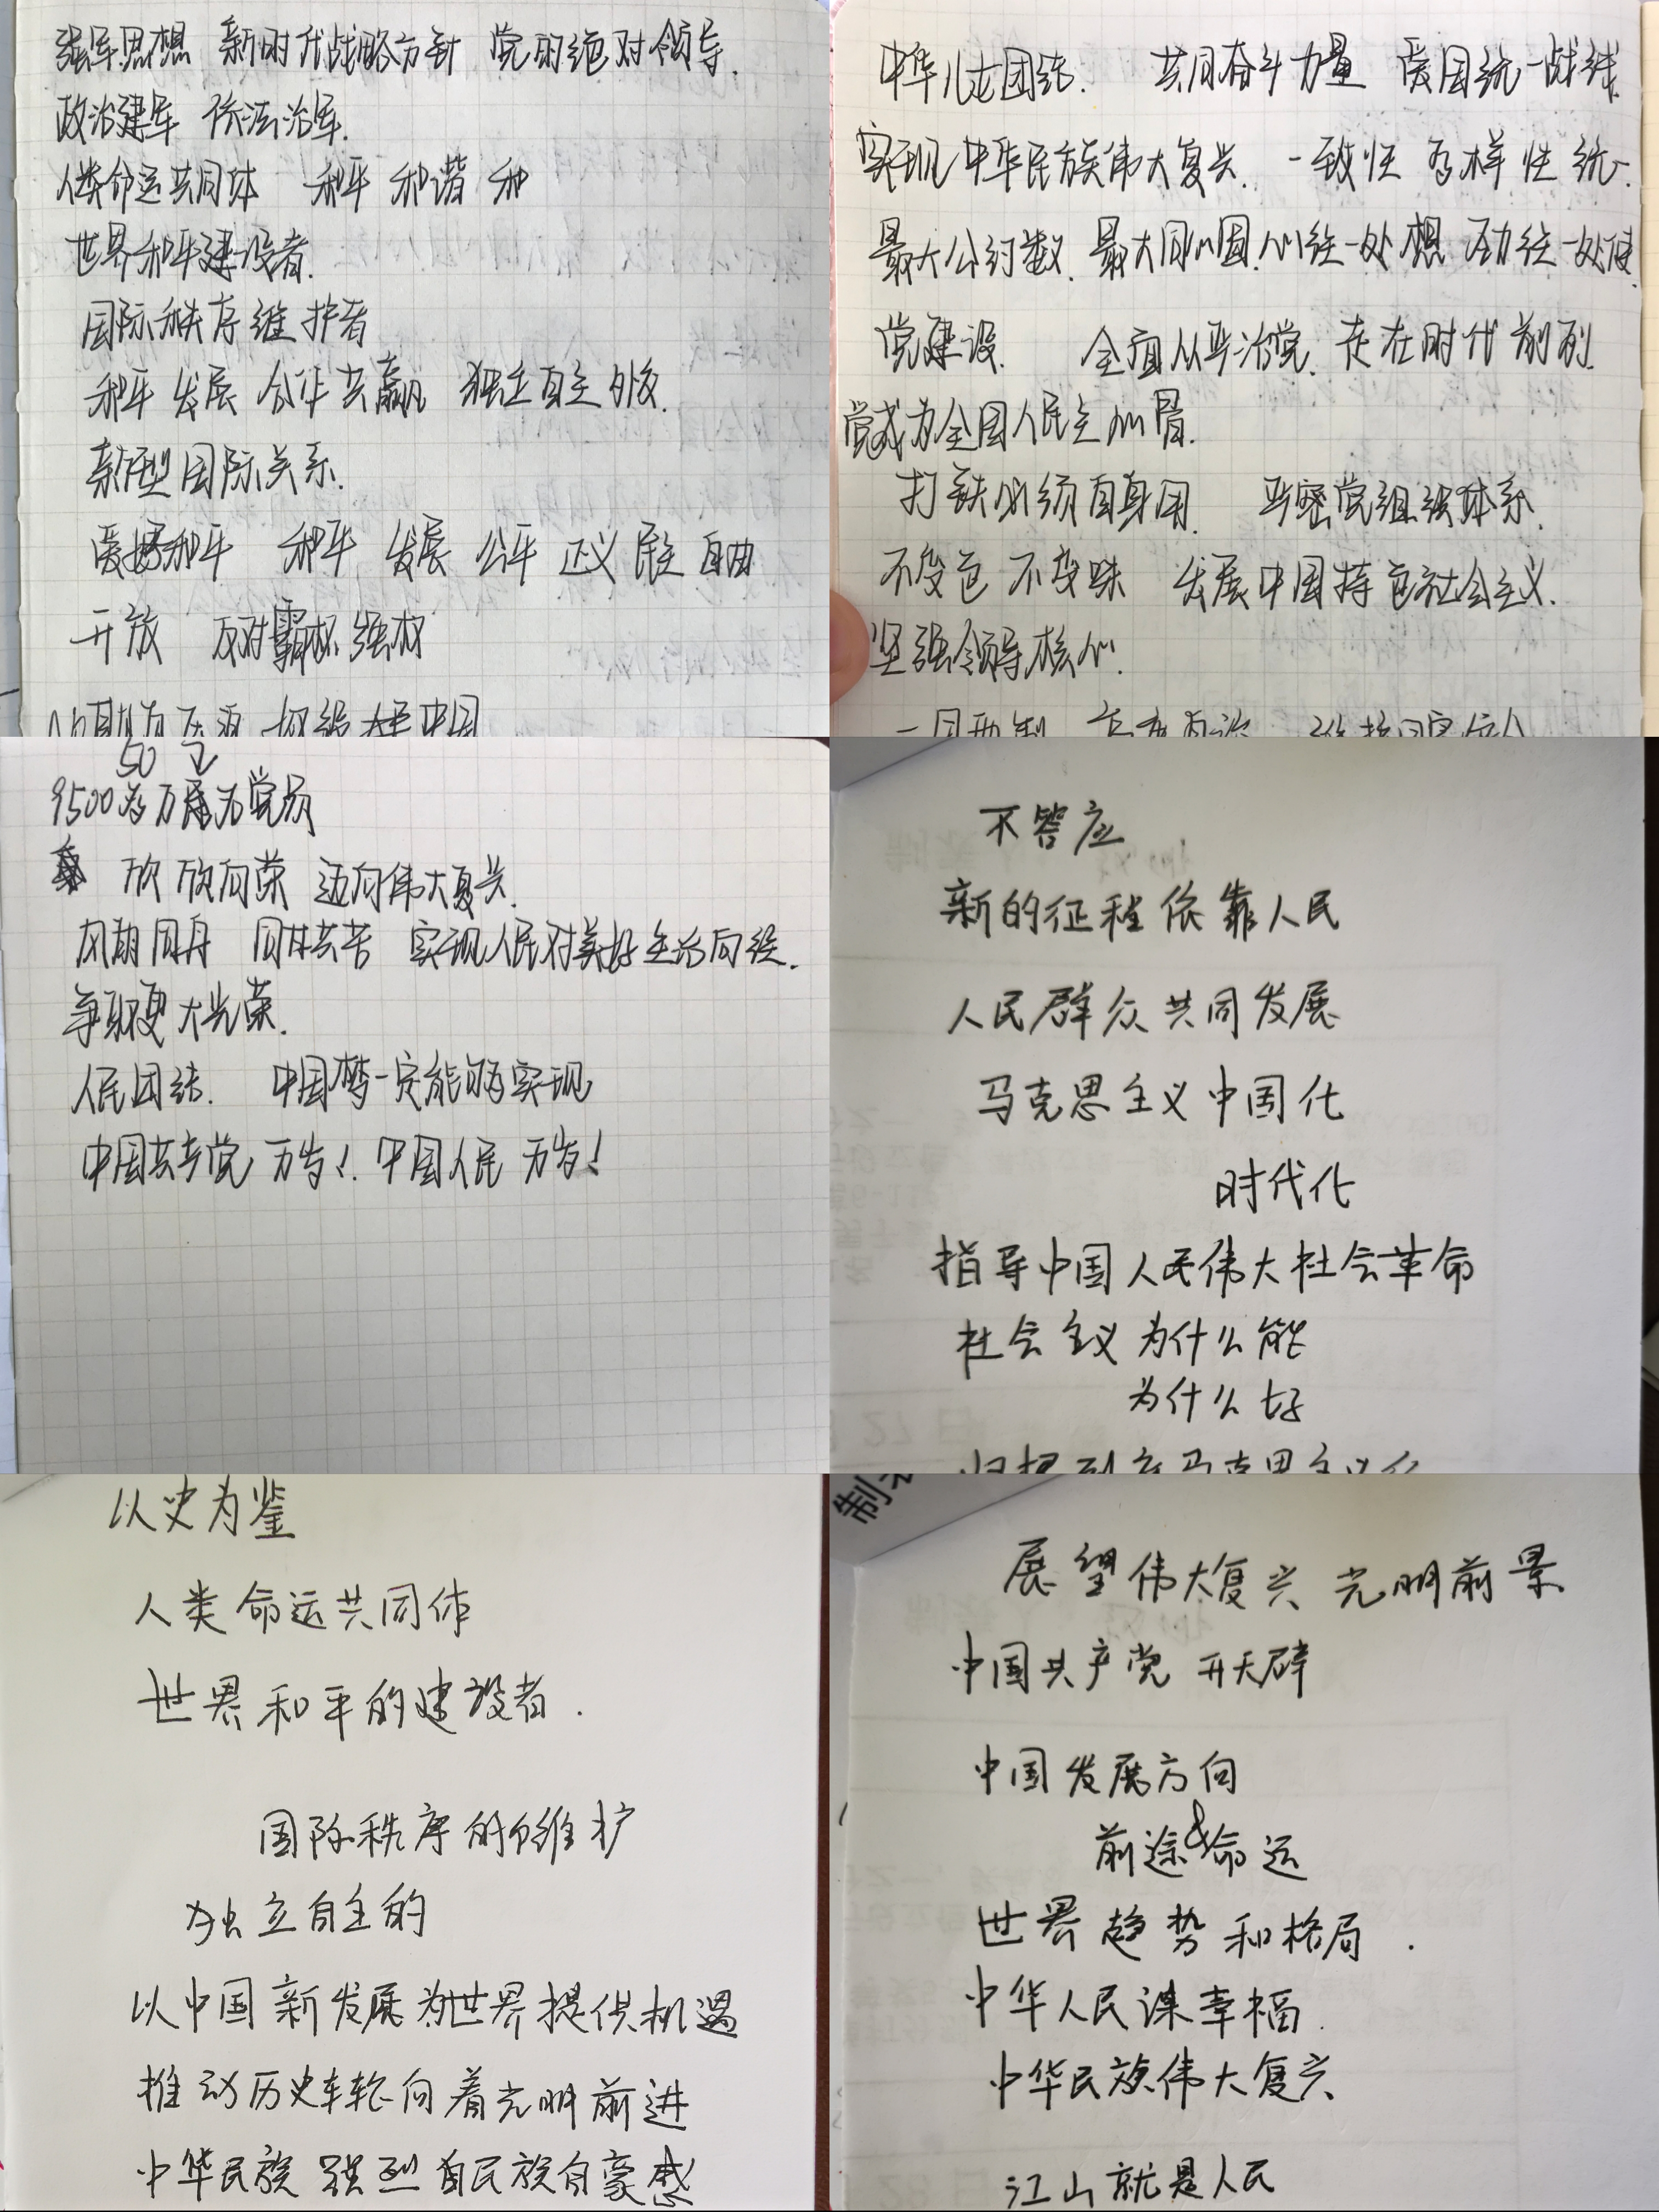 强军思想 新时代战略方针 党的绝对领导.
政治建军 依法治军.
人类命运共同体 和平 和谐 和
世界和平建设者.
国际秩序维护者
和平 发展 合作 共赢 独立自主
新型国际关系.
爱好和平 和平 发展 公平 正义 民主 自由
开放 反对霸权 强权
中华儿女团结. 共同奋斗力量 爱国统一战线.
实现中华民族伟大复兴. 一致性 多样性 统一.
最大公约数. 最大同心圆. 心往一处想 劲往一处使.
党建设. 全面从严治党. 走在时代前列.
党成为全国人民主心骨.
打铁必须自身 严密党组织体系.
不变色 不变味 发展中国特色社会主义.
坚强领导核心.
50
9500多万 党员
欣欣向荣 迈向伟大复兴.
同舟 同甘共苦 实现人民对美好生活向往.
争取更大光荣.
人民团结. 中国梦一定能够实现
中国共产党万岁! 中国人民万岁!
不答应
新的征程依靠人民
人民群众共同发展
马克思主义中国化
时代化
指导中国人民伟大社会革命
社会主义为什么能
为什么好
以史为鉴
人类命运共同体
世界和平的建设者.
国际秩序的维护
独立自主的
以中国新发展为世界提供机遇
推动历史车轮向着光明前进
中华民族 强烈 民族自豪感
制
展望伟大复兴 光明前景
中国共产党 开天辟
中国发展方向
前途&命运
世界趋势和格局.
中华人民谋幸福.
中华民族伟大复兴
江山就是人民